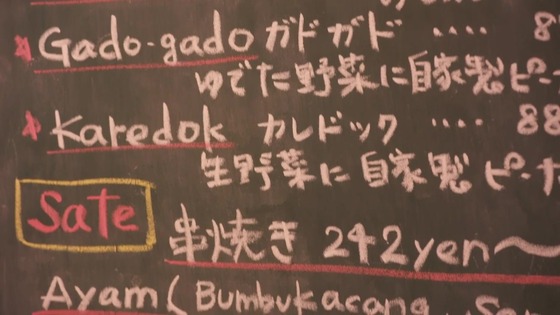 Gado-gado ガドガド .... 8
ゆでた野菜に自家製ピー
Karedok カレドック .... 88
生野菜に自家製ピーナ
Sate 串焼き 242yen〜
Ayam ( Bumbukacang